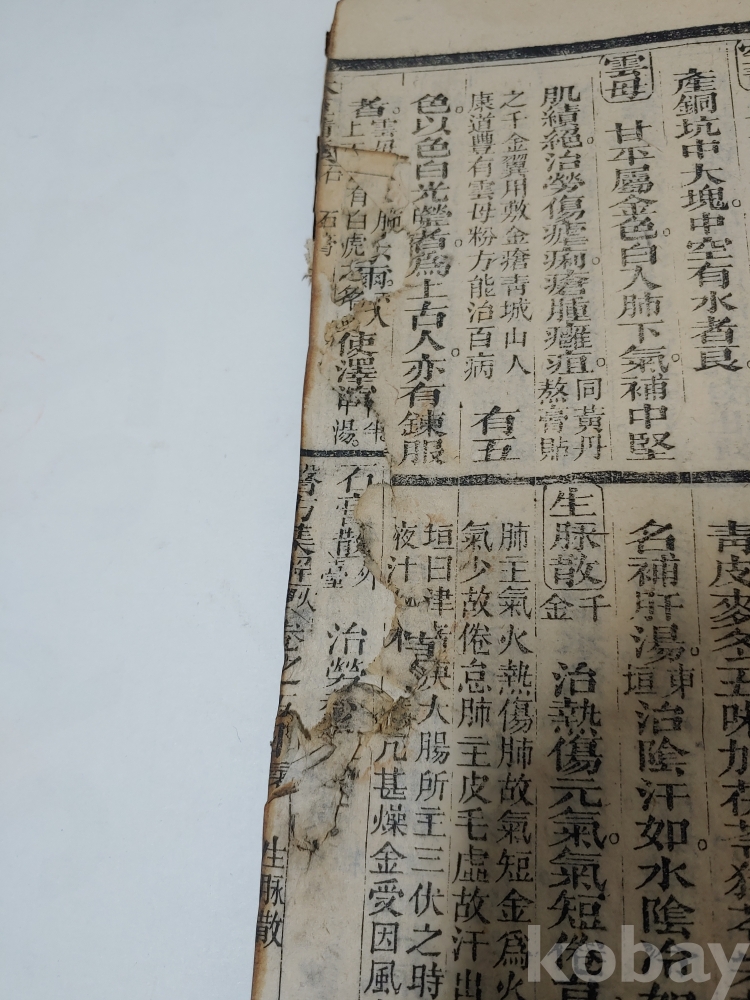 產銅坑中大塊中空有水者良。
雲母 甘平屬金色白入肺下氣補中堅
肌續絕治勞傷瘧痢瘡腫癰疽。同黃丹
熬膏貼
之千金翼用敷金瘡青城山人
康道豐有雲母粉方能治百病 有五
色以色白光瑩者為上古人亦有鍊服
者。雲母
上 有白虎 使澤瀉 湯。
石膏
青皮麥冬五味加茯苓猪苓
名補肝湯。東
垣治陰汗如水陰冷如
生脈散 千
金 治熱傷元氣氣短倦怠
肺主氣火熱傷肺故氣短金為火
氣少故倦怠肺主皮毛虛故汗出
垣曰津者庚大腸所主三伏之時
液汁 元甚燥金受因風
石膏散 外
臺 治勞
醫方集解 卷之
生脈散
kobay